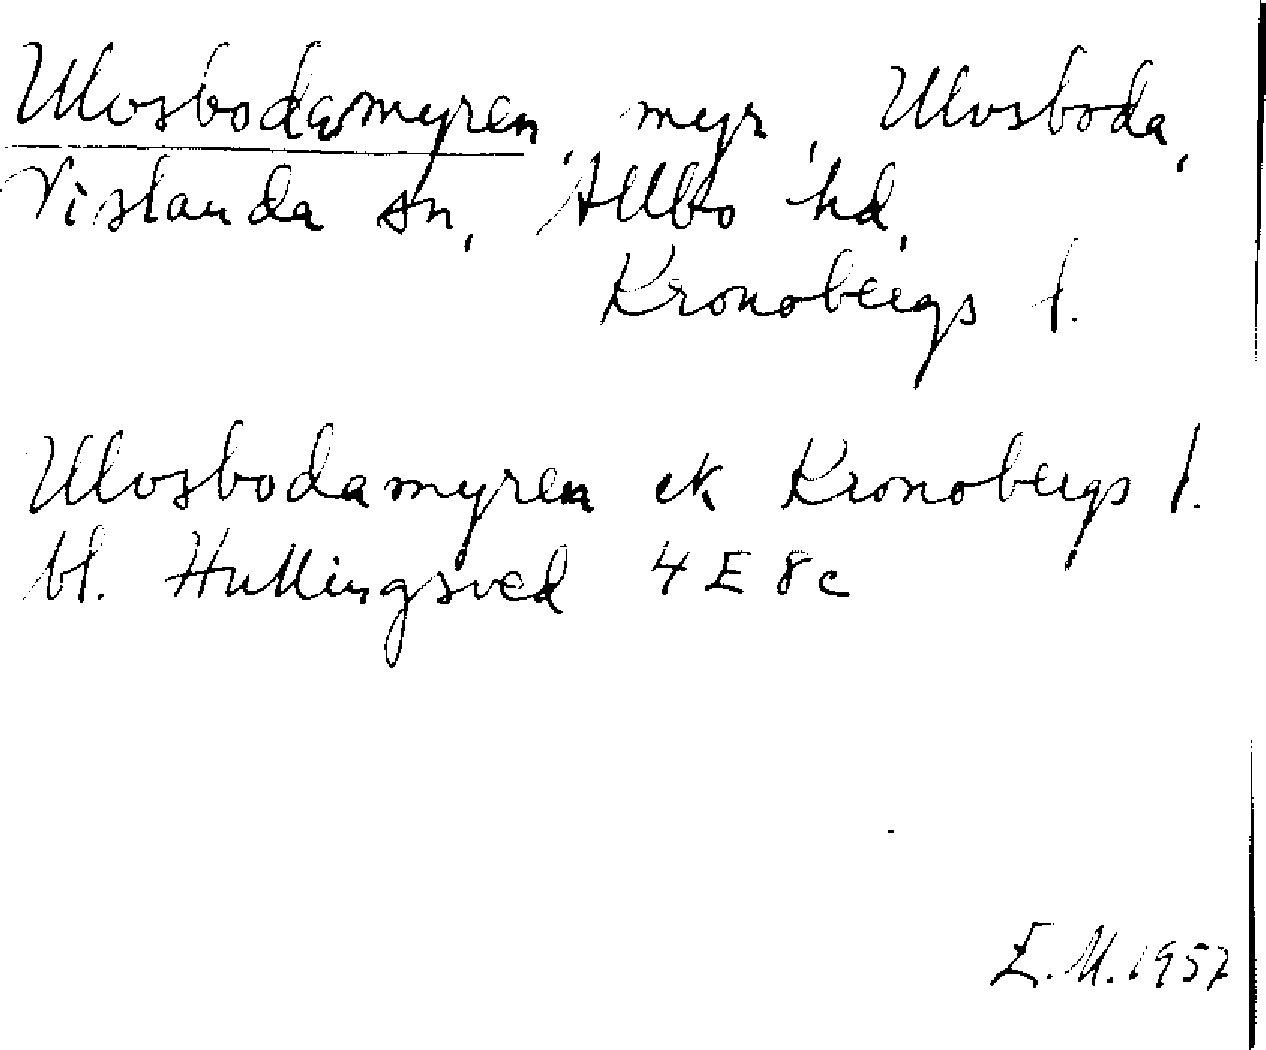 Ulvsbodamyren, myr, Ulvsboda,
Vislanda sn, Allbo hd,
Kronobergs l.
Ulvsbodamyren ek Kronobergs l.
bl. Hullingsved 4 E 8 c
E.M. 1957